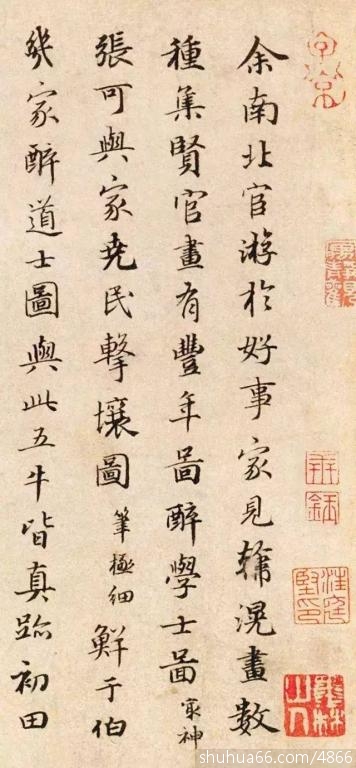 子京
余南北宦游於好事家見韓滉畫數
種集賢官畫有豐年啚醉學士啚冣神
張可與家堯民擊壤圖筆極細鮮于伯
幾家醉道士圖與此五牛皆真跡初田
墨林山人
shuhua66.com/4866